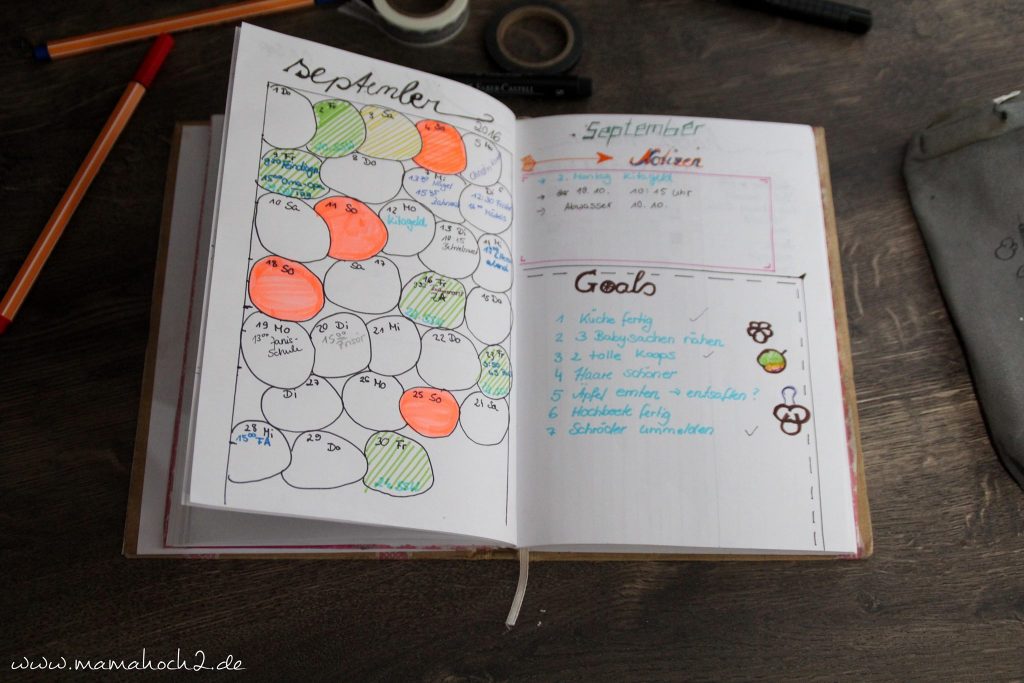 september
2016
1 Do
2 Fr
3 Sa
4 So
5 Mo
9 Fr
8 Do
7 Mi
6 Di
10 Sa
11 So
12 Mo
Kitageld
13 Di
14 Mi
18 So
Sa 17
16 Fr
ZA
15 Do
19 Mo
13⁰⁰ Janis-
Schule
20 Di
15⁰⁰
21 Mi
22 Do
23 Fr
Di 27
26 Mo
25 So
Sa
28 Mi
15⁰⁰ FA
29
Do
30 Fr
24. SSW
September
Notizen
→ 2. Montag Kitageld
→ 10.10. 10:15 Uhr
→ Abwasser 10.10.
Goals
1 Küche fertig ✓
2 3 Babysachen nähen
3 2 tolle Koops ✓
4 Haare schöner
5 Äpfel ernten → entsaften?
6 Hochbeete fertig
7 Schröder ummelden ✓
FABER-CASTELL
www.mamahoch2.de